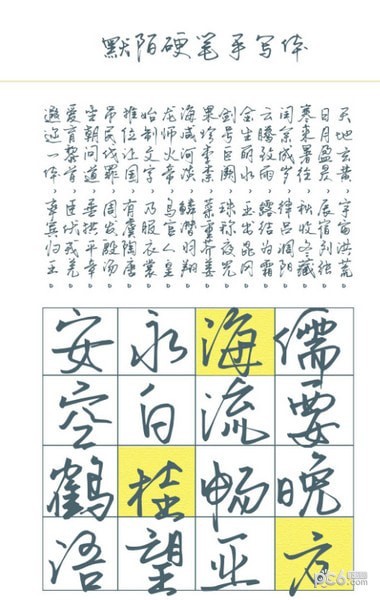 默陌硬笔手写体
天地玄黄,宇宙洪荒。
日月盈昃,辰宿列张。
寒来暑往,秋收冬藏。
闰余成岁,律吕调阳。
云腾致雨,露结为霜。
金生丽水,玉出昆冈。
剑号巨阙,珠称夜光。
果珍李柰,菜重芥姜。
海咸河淡,鳞潜羽翔。
龙师火帝,鸟官人皇。
始制文字,乃服衣裳。
推位让国,有虞陶唐。
吊民伐罪,周发殷汤。
坐朝问道,垂拱平章。
爱育黎首,臣伏戎羌。
遐迩一体,率宾归王。
安永海儒
空白流要
鹤桂畅晚
浯望亚夜